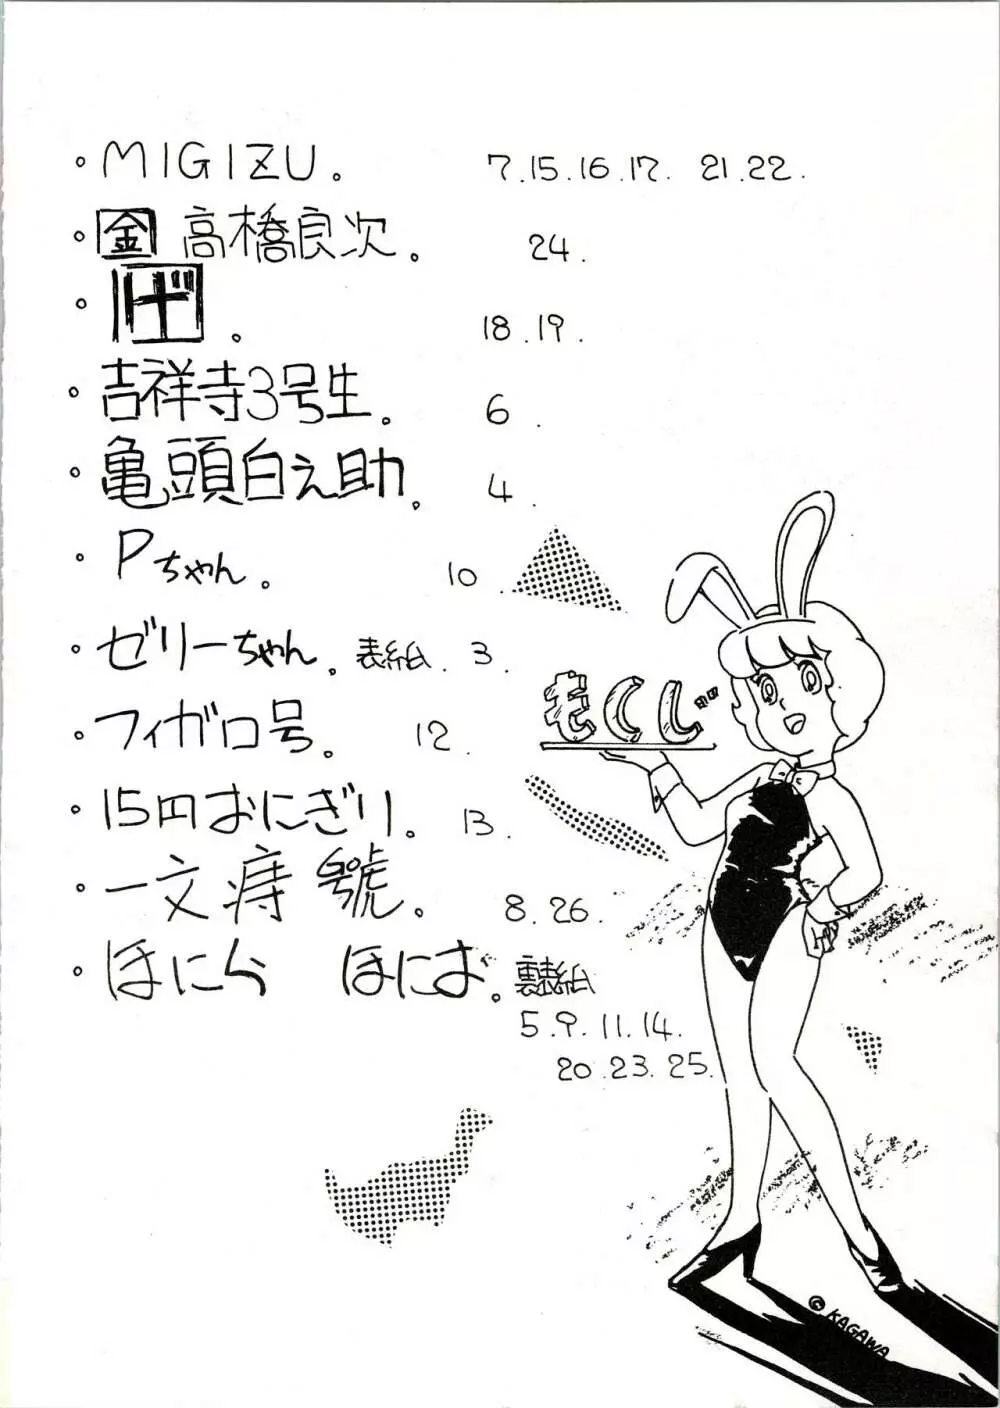 ・MIGIZU。 7.15.16.17. 21.22.
・金 高橋良次。 24.
・ 。 18.19.
・吉祥寺3号生。 6.
・亀頭白之助。 4.
・Pちゃん。 10.
・ゼリーちゃん。表紙. 3.
・フィガロ号。 12.
・15円おにぎり。 13.
・一文痔 號。 8.26.
・ほにら ほにお。裏表紙
5.9.11.14.
20.23.25.
もくじ
© KAGAWA